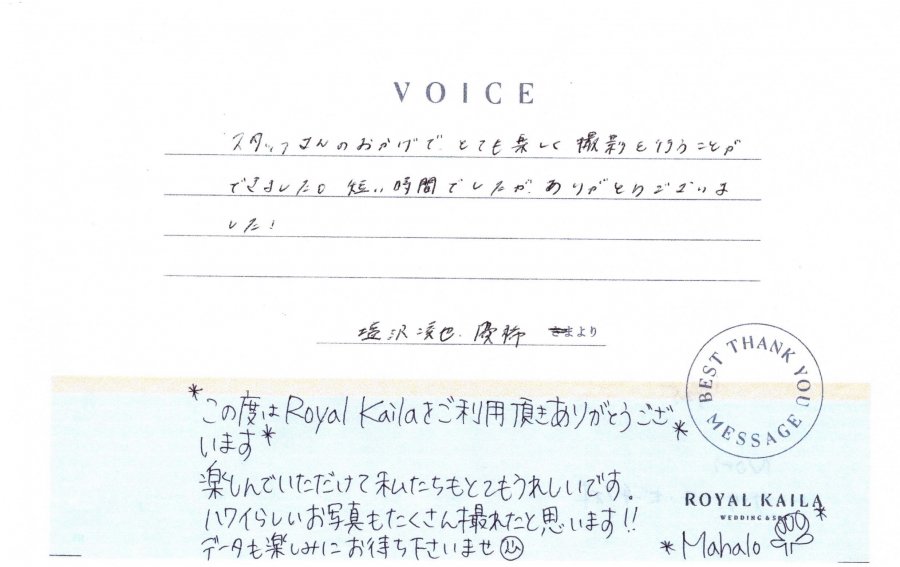 VOICE
スタッフさんのおかげで、とても楽しく撮影を行うことが
できました。短い時間でしたが、ありがとうございま
した!
塩沢 優 さまより
BEST THANK YOU MESSAGE
*この度はRoyal Kailaをご利用頂きありがとうござ
います*
楽しんでいただけて私たちもとてもうれしいです。
ハワイらしいお写真もたくさん撮れたと思います!!
データも楽しみにお待ち下さいませ
ROYAL KAILA
*Mahalo*